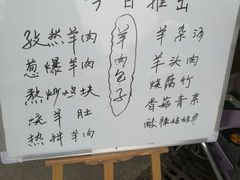 今日推出
孜然羊肉
葱爆羊肉
熬炒鸡块
烧羊肚
热拌羊肉
羊肉包子
羊杂汤
羊头肉
烧腐竹
香菇青菜
酸辣娃娃菜